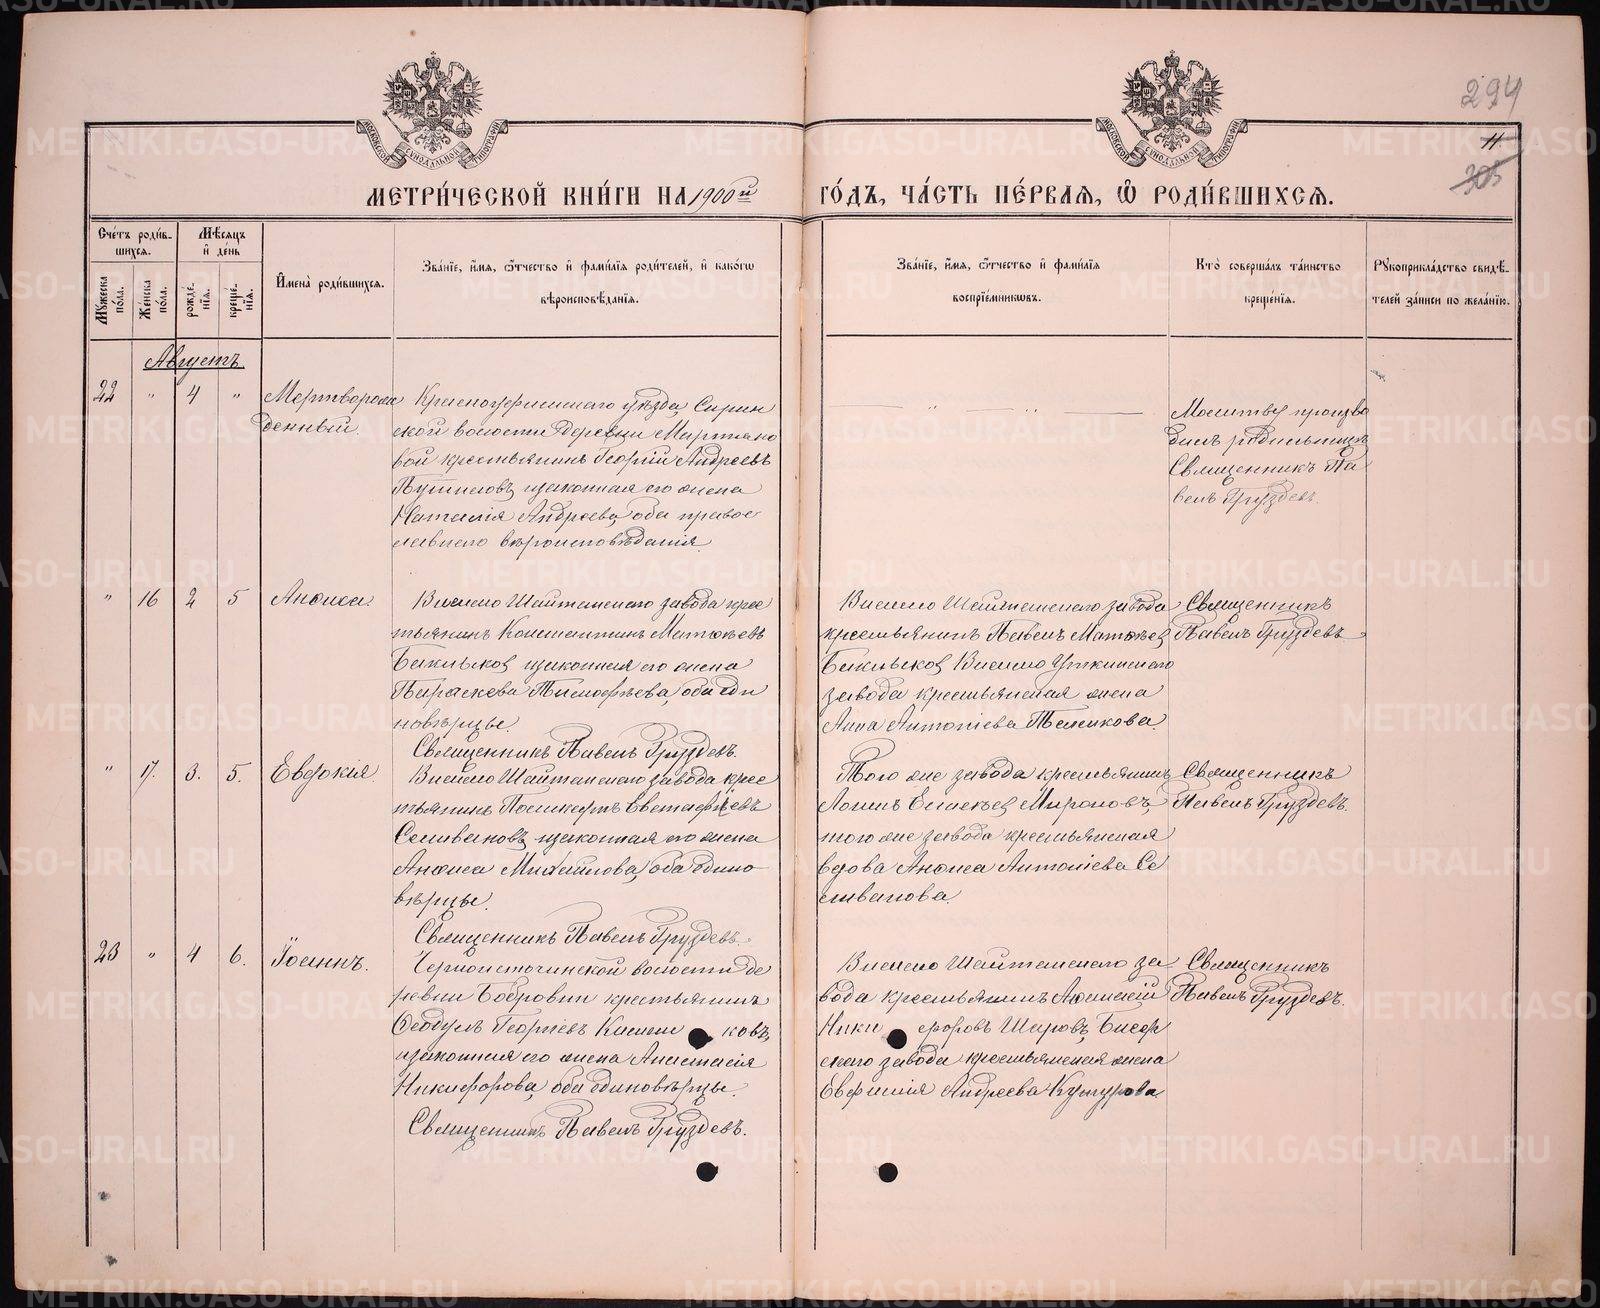 294
11
305
МОСКОВСКОЙ СѴНОДАЛЬНОЙ ТИПОГРАФІИ
МОСКОВСКОЙ СѴНОДАЛЬНОЙ ТИПОГРАФІИ
МЕТРИ́ЧЕСКОЙ КНИ́ГИ НА 1900й ГО́ДЪ, ЧА́СТЬ ПЕ́РВАЯ, Ѡ РОДИ́ВШИХСЯ.
Сче́тъ роди́в-
шихся.
Мѣ́сяцъ
и҆ де́нь
Мꙋ́жеска
по́ла.
Же́нска
по́ла.
рожде́-
нїѧ.
креще́-
нїѧ.
И҆мена̀ роди́вшихсѧ.
Зва́нїе, и҆́мѧ, ѻ҆́тчество и҆ фами́лїѧ роди́телей, и҆ како́гѡ
вѣроисповѣ́данїѧ.
Зва́нїе, и҆́мѧ, ѻ҆́тчество и҆ фами́лїѧ
воспрїе́мникѡвъ.
Кто̀ соверша́лъ та́инство
креще́нїѧ.
Рꙋкоприкла́дство свидѣ́-
телей за́писи по жела́нїю.
Августъ
22 " 4 " Мертворож
денный.
Красноуфимскаго уѣзда, Сирин
ской волости деревни Мартьяно
вой крестьянинъ Георгій Андреевъ
Путиловъ, и законная его жена
Наталія Андреева, оба правос
лавнаго вѣроисповѣданія.
Молитву произво
дилъ родильницѣ
Священникъ Па
велъ Груздевъ.
" 16 2 5 Анѳиса.
Висимо Шайтанскаго завода крес
тьянинъ Константинъ Матѳеевъ
и законная его жена
Параскева Тимофѣева, оба еди
новѣрцы.
Священникъ Павелъ Груздевъ.
Висимо Шайтанскаго завода
крестьянинъ Павелъ Матѳеевъ
Висимо Уткинскаго
завода крестьянская жена
Анна Антоніева
Священникъ
Павелъ Груздевъ
" 17. 3. 5. Евдокія.
Висимо Шайтанскаго завода крес
тьянинъ Поликарпъ Евстафіевъ
Селивановъ, и законная его жена
Анѳиса Михаилова, оба едино-
вѣрцы.
Священникъ Павелъ Груздевъ.
Того же завода крестьянинъ
Мироновъ,
того же завода крестьянская
вдова Анѳиса Антоніева Се
ливанова.
Священникъ
Павелъ Груздевъ.
23 " 4 6. Іоаннъ.
Черноисточинской волости де
ревни Бобровки крестьянинъ
Ѳеодулъ Георгіевъ
и законная его жена Анастасія
Никифорова, оба единовѣрцы.
Священникъ Павелъ Груздевъ.
Висимо Шайтанскаго за
вода крестьянинъ Аѳанасій
Ники форовъ Шаровъ, Бисер
скаго завода крестьянская жена
Евфимія Андреева
Священникъ
Павелъ Груздевъ.
METRIKI.GASO-URAL.RU